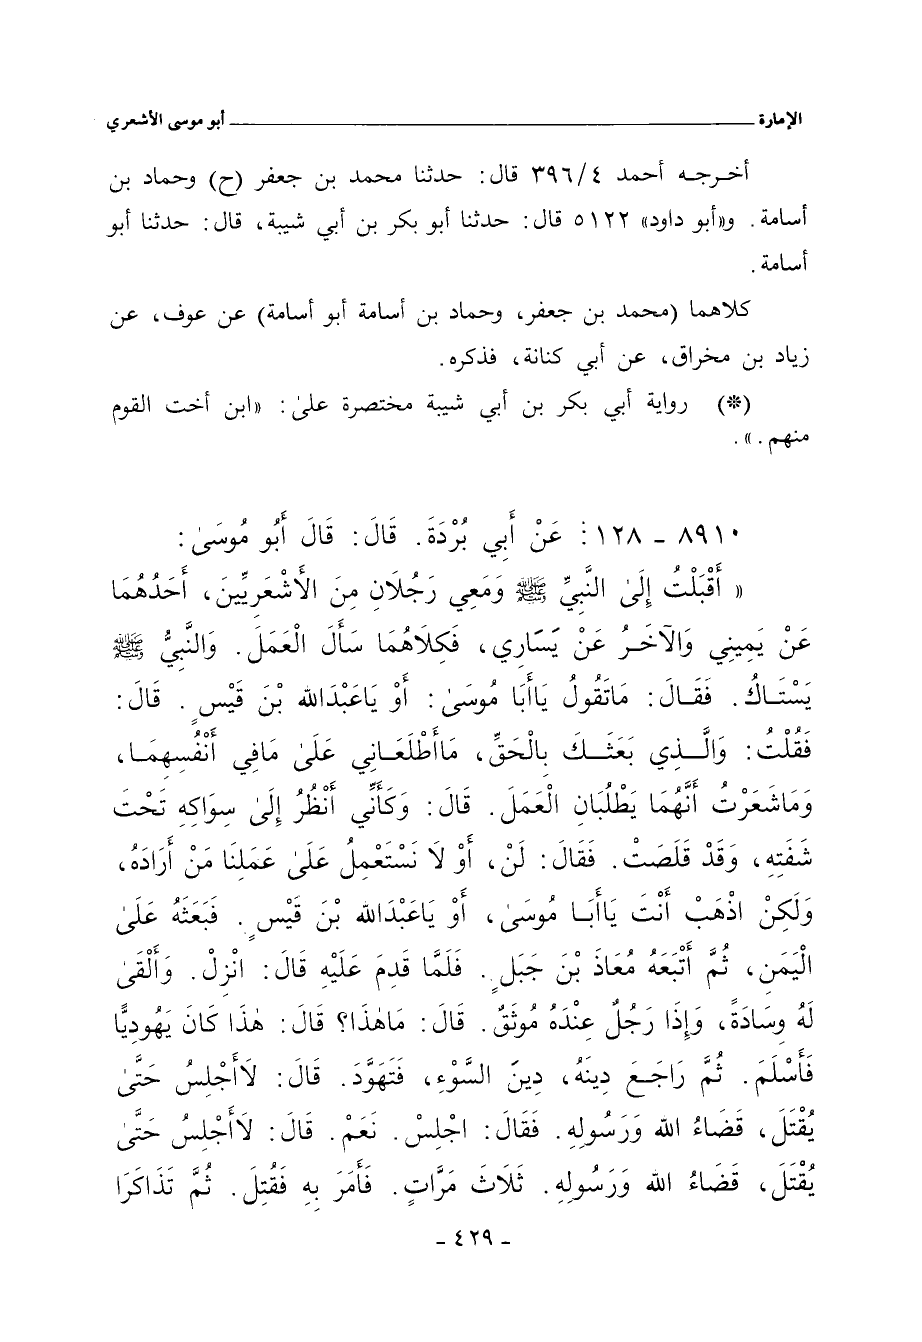 الإمارة ـــــــ أبو موسى الأشعري
أخرجه أحمد ٣٩٦/٤ قال: حدثنا محمد بن جعفر (ح) وحماد بن
أسامة. و«أبو داود» ٥١٢٢ قال: حدثنا أبو بكر بن أبي شيبة، قال: حدثنا أبو
أسامة.
كلاهما (محمد بن جعفر، وحماد بن أسامة أبو أسامة) عن عوف، عن
زياد بن مخراق، عن أبي كنانة، فذكره.
(*) رواية أبي بكر بن أبي شيبة مختصرة علىٰ: «ابن أخت القوم
منهم.».
٨٩١٠ - ١٢٨: عَنْ أَبِي بُرْدَةَ. قَالَ: قَالَ أَبُو مُوسَىٰ:
« أَقْبَلْتُ إِلَىٰ النَّبِيِّ ﷺ وَمَعِي رَجُلَانِ مِنَ الْأَشْعَرِيِّينَ، أَحَدُهُمَا
عَنْ يَمِينِي وَالآخَرُ عَنْ يَسَارِي، فَكِلَاهُمَا سَأَلَ الْعَمَلَ. وَالنَّبِيُّ ﷺ
يَسْتَاكُ. فَقَالَ: مَاتَقُولُ يَاأَبَا مُوسَىٰ: أَوْ يَاعَبْدَالله بْنَ قَيْسٍ. قَالَ:
فَقُلْتُ: وَالَّذِي بَعَثَكَ بِالْحَقِّ، مَاأَطْلَعَانِي عَلَىٰ مَافِي أَنْفُسِهِمَا،
وَمَاشَعَرْتُ أَنَّهُمَا يَطْلُبَانِ الْعَمَلَ. قَالَ: وَكَأَنِّي أَنْظُرُ إِلَىٰ سِوَاكِهِ تَحْتَ
شَفَتِهِ، وَقَدْ قَلَصَتْ. فَقَالَ: لَنْ، أَوْ لَا نَسْتَعْمِلُ عَلَىٰ عَمَلِنَا مَنْ أَرَادَهُ،
وَلَكِنْ اذْهَبْ أَنْتَ يَاأَبَا مُوسَىٰ، أَوْ يَاعَبْدَالله بْنَ قَيْسٍ. فَبَعَثَهُ عَلَىٰ
الْيَمَنِ، ثُمَّ أَتْبَعَهُ مُعَاذَ بْنَ جَبَلٍ. فَلَمَّا قَدِمَ عَلَيْهِ قَالَ: انْزِلْ. وَأَلْقَىٰ
لَهُ وِسَادَةً، وَإِذَا رَجُلٌ عِنْدَهُ مُوثَقٌ. قَالَ: مَاهٰذَا؟ قَالَ: هٰذَا كَانَ يَهُودِيًّا
فَأَسْلَمَ. ثُمَّ رَاجَعَ دِينَهُ، دِينَ السَّوْءِ، فَتَهَوَّدَ. قَالَ: لَاأَجْلِسُ حَتَّىٰ
يُقْتَلَ، قَضَاءُ الله وَرَسُولِهِ. فَقَالَ: اجْلِسْ. نَعَمْ. قَالَ: لَاأَجْلِسُ حَتَّىٰ
يُقْتَلَ، قَضَاءُ الله وَرَسُولِهِ. ثَلَاثَ مَرَّاتٍ. فَأَمَرَ بِهِ فَقُتِلَ. ثُمَّ تَذَاكَرَا
- ٤٢٩ -